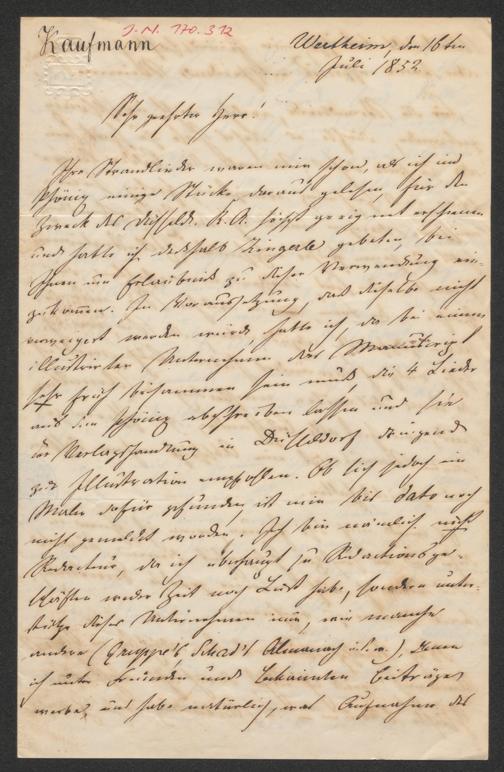 J. N. 170.312
Kaufmann
Wertheim, den 16ten
Juli 1852
Sehr geehrter Herr!
Ihre Strandlieder waren mir schon, als ich im
Phönix einige Stücke daraus gelesen, für den
Zweck des Düsseld. K.A. höchst geeignet erschienen
und hatte ich deshalb Zingerle gebeten, bei
Ihnen um Erlaubniß zu dieser Verwendung ein-
zukommen. In Voraussetzung, daß dieselbe nicht
verweigert werden würde, hatte ich, da bei einem
illustrirten Unternehmen das Manuscript
sehr früh beisammen sein muß, die 4 Lieder
aus dem Phönix abschreiben lassen und sie
der Verlagshandlung in Düsseldorf dringend
zur Illustration empfohlen. Ob sich jedoch ein
Maler dafür gefunden, ist mir bis dato noch
nicht gemeldet worden. Ich bin nämlich nicht
Redacteur, da ich überhaupt zu Redactionsge-
schäften weder Zeit noch Lust habe, sondern unter-
stütze dieses Unternehmen nur, wie manche
andere (Gruppe's, Schad's Almanach u.s.w.), denen
ich unter Freunden und Bekannten Beiträge
werbe, und habe natürlich, was Aufnahme des